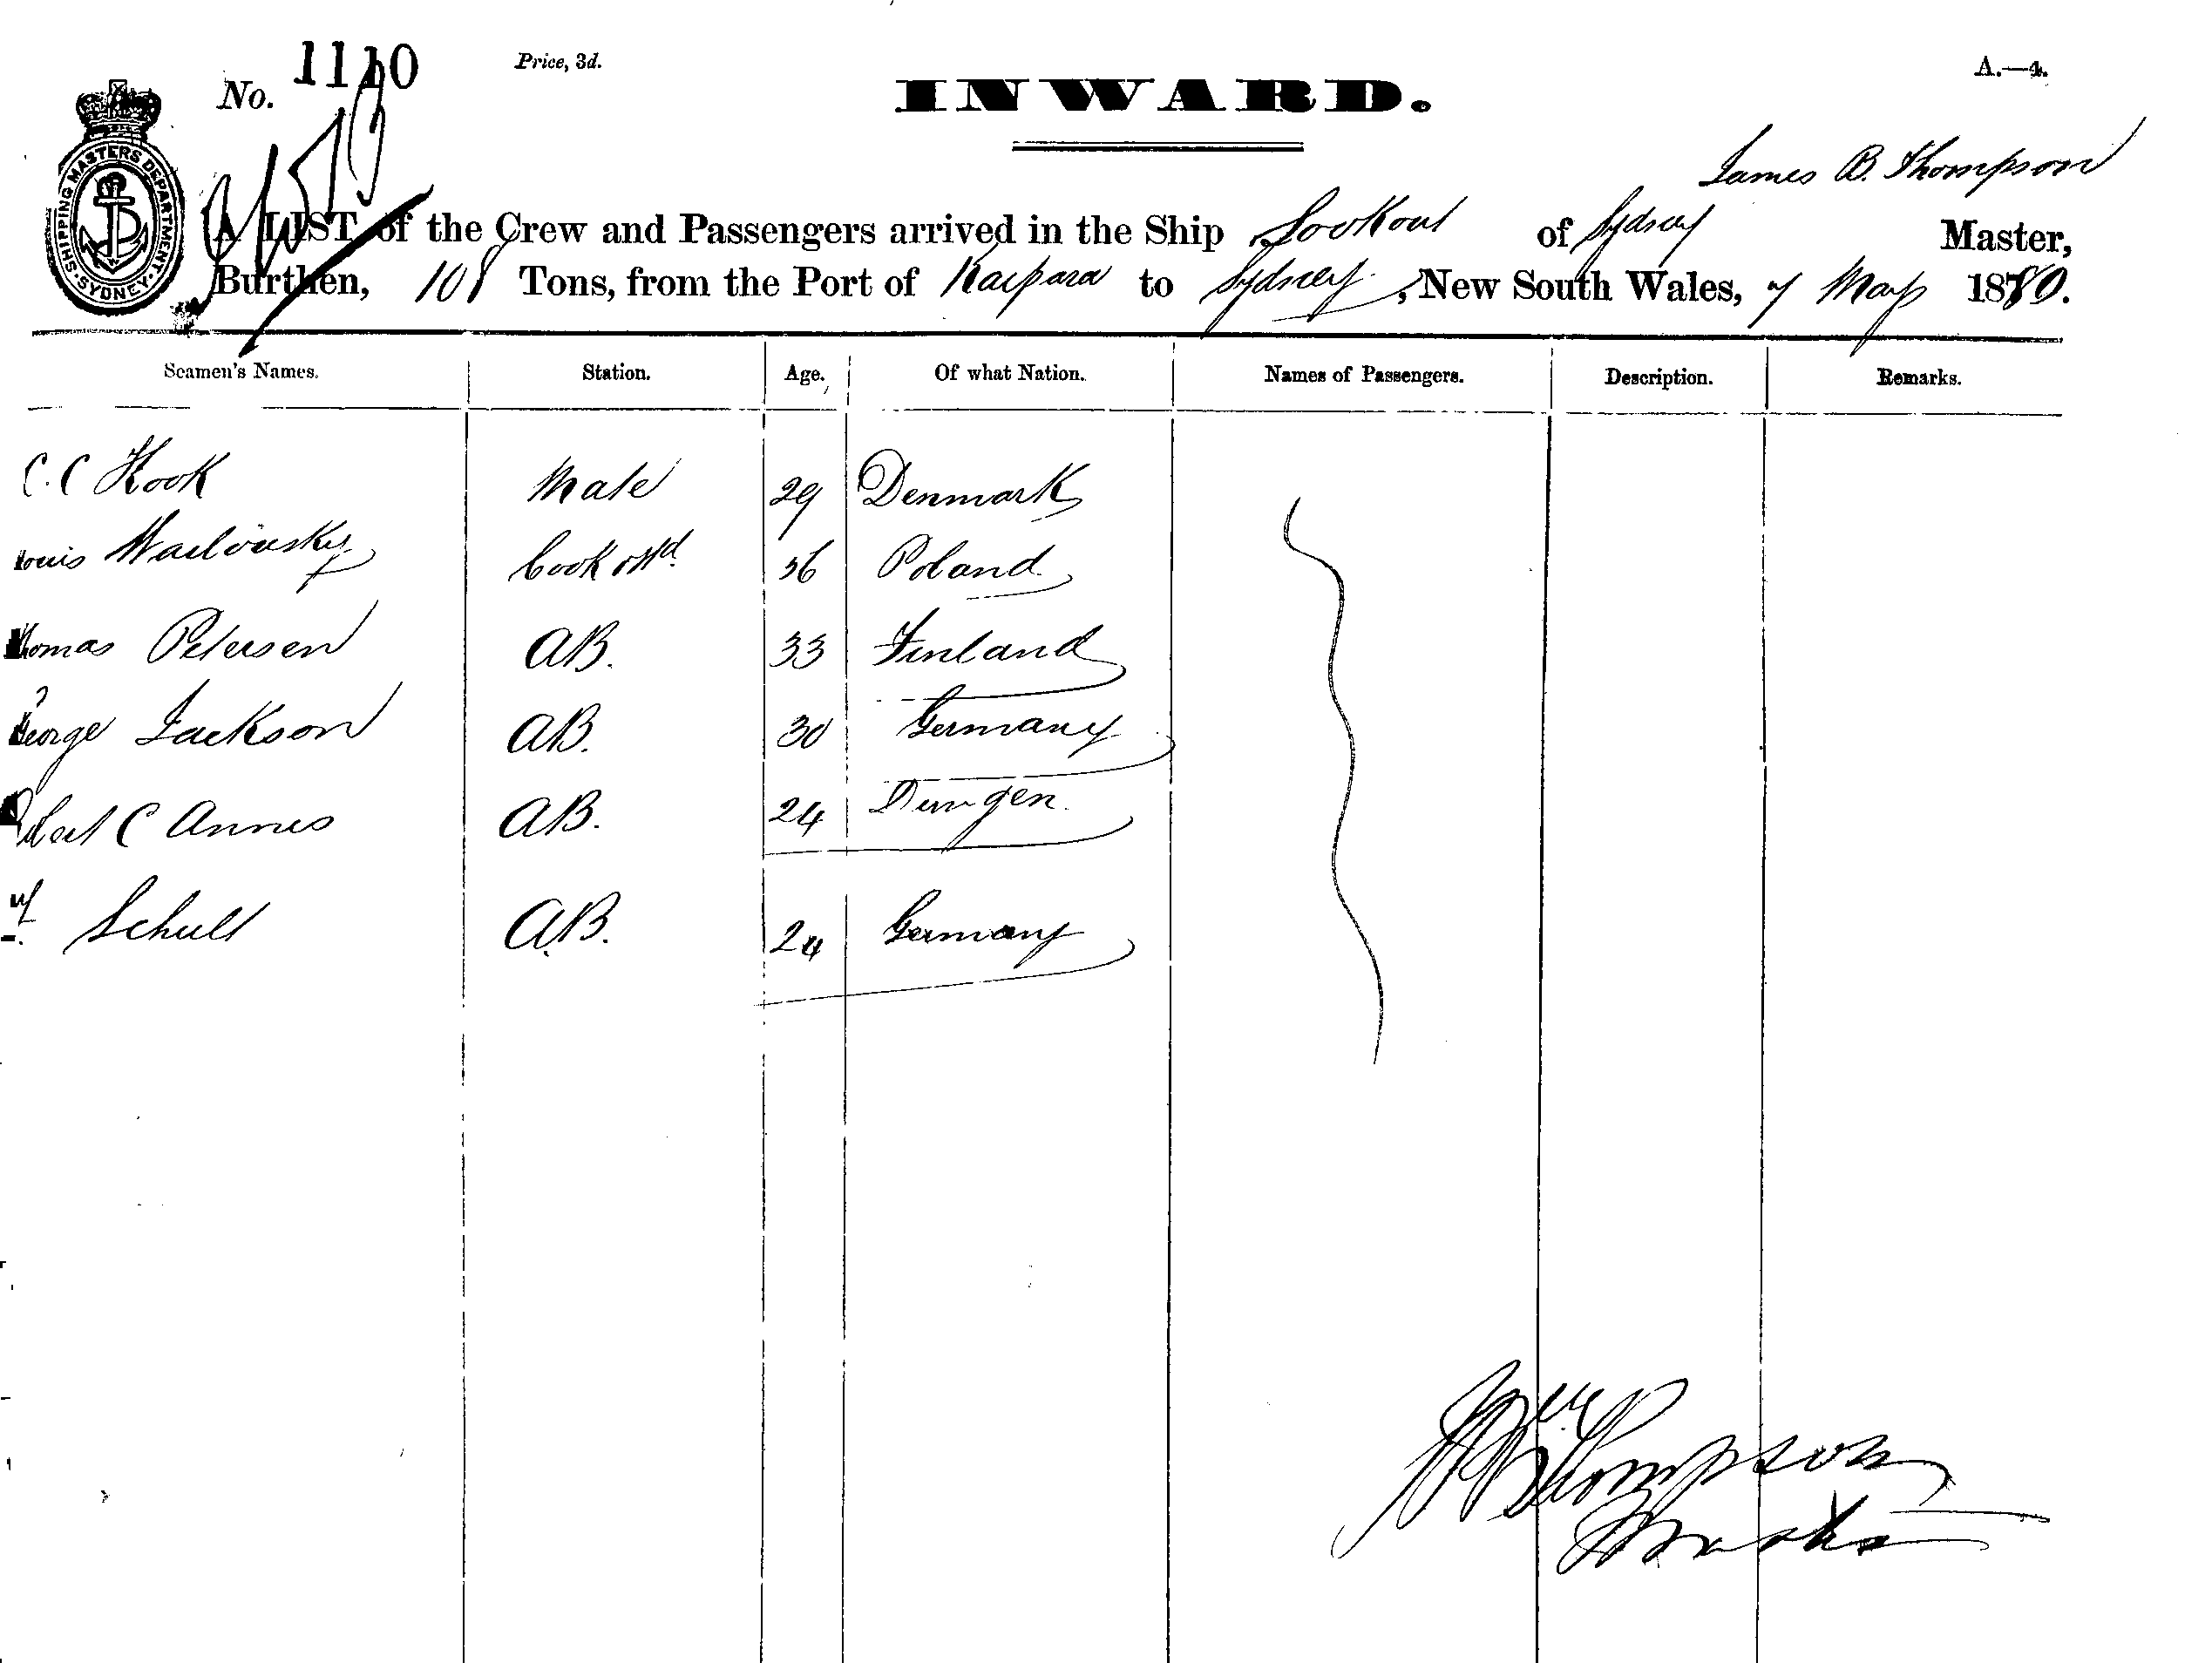 No. 1110
Price, 3d.
A.—4.
INWARD.
SHIPPING MASTERS DEPARTMENT. SYDNEY.
James B. Thompson
A LIST of the Crew and Passengers arrived in the Ship Lookout of Sydney Master,
Burthen, 108 Tons, from the Port of Kaipara to Sydney, New South Wales, 7 May 1880.
Seamen's Names. Station. Age. Of what Nation. Names of Passengers. Description. Remarks.
C. C Kook Mate 29 Denmark
Louis Cook & Std. Poland
Thomas Petersen AB. 33 Finland
George Jackson AB. 30 Germany
Robert C Annis AB. 24
Schult A.B. 24 Germany
Thompson
Master